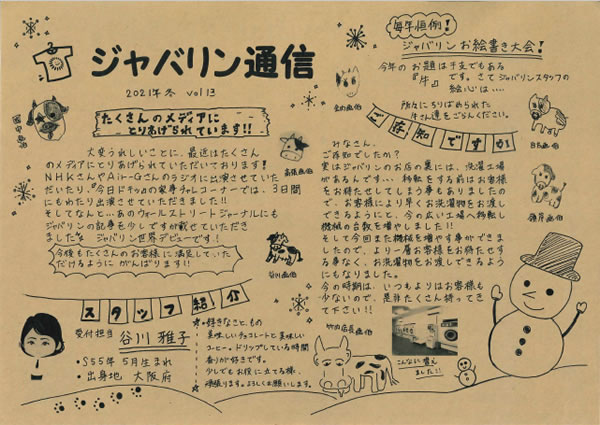 ジャバリン通信
2021年冬 vol 13
たくさんのメディアに
とりあげられています!!
大変うれしいことに、最近はたくさん
のメディアにとりあげていただいております!
NHKさんやAir-Gさんのラジオに出演させていた
だいたり、今日ドキッ!の家事チャレコーナーでは、3日間
にもわたり出演させていただきました!!
そしてなんと…あのウォールストリートジャーナルにも
ジャバリンの記事を少しですが載せていただき
ました ジャバリン世界デビューです!
今後もたくさんのお客様に満足していた
だけるようにがんばります!!
スタッフ紹介
受付担当 谷川 雅子
・S55年 5月生まれ
・出身地 大阪府
・好きなこと、もの
美味しいチョコレートと美味しい
コーヒー。ドリップしている時間
香りが好きです。
少しでもお役に立てる様、
頑張ります。よろしくお願いします。
毎年恒例!
ジャバリンお絵書き大会!
今年のお題は干支でもある
『牛』です。さてジャバリンスタッフの
絵心は……
所々にちりばめられた
牛さん達をごらんください。
ご存知ですか
みなさん、
ご存知でしたか?
実はジャバリンのお店の裏には、洗濯工場
があるんです… 移転をする前はお客様
をお待たせしてしまう事もありましたの
で、お客様により早くお洗濯物をお渡し
できるようにと、今の広い工場へ移転し
機械の台数を増やしました!!
そして今回また機械を増やす事ができま
したので、より一層お客様をお待たせす
る事なく、お洗濯物をお渡しできるよう
にもなりました。
今の時期は、いつもよりはお客様も
少ないので、是非たくさん持ってき
て下さい!!
谷川画伯
竹内店長画伯
こんなに増え
ました!!